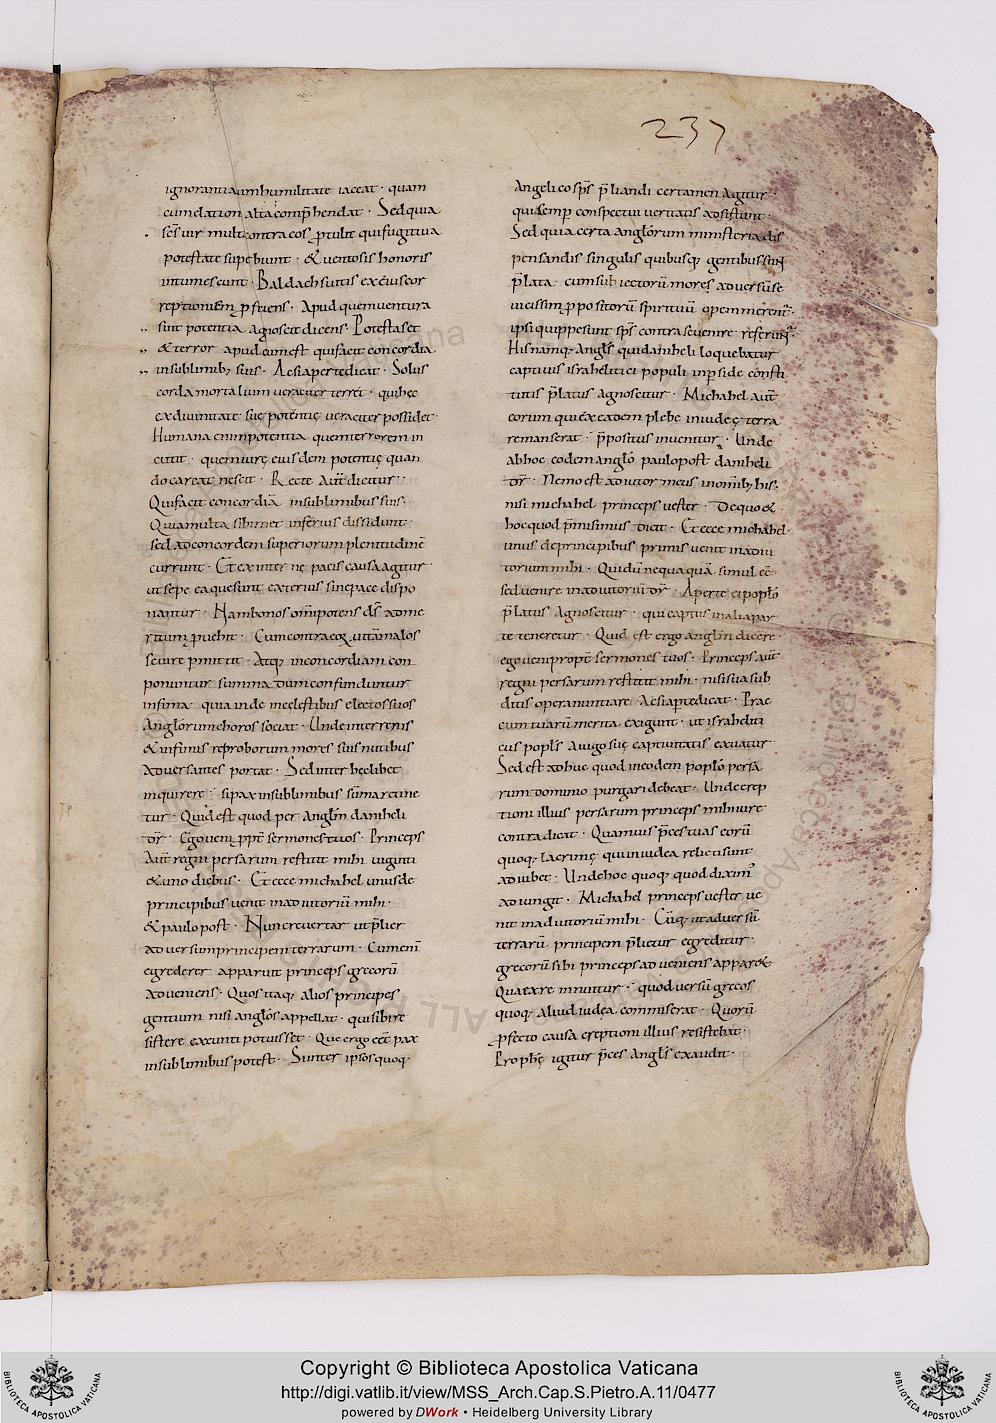 237
ignorantiaum humilitate iaceat · quam
cum elation alta comp̄hendat · Sed quia
potestate supebiunt · & ventosis honoris
intumescunt · Baldach suitis
Apud quem ventura
sint potentia agnoscit dicens · Potestas et
& terror apud eum est qui facit concordia
in sublimib; suis · Ac si aperte dicat · Solus
corda mortalium veraciter terret · qui hęc
ex divinitate suę potentię veraciter possidet ·
Humana enim potentia quem terrorem in
cutit · quem iurę eiusdem potentię quan
do careat nescit · Recte aut̄ dicitur ·
Qui facit concordiā in sublimibus suis ·
Quia multa sibimet inferius dissidunt ·
sed ad concordem superiorum plenitudinē
currunt · Et ex inter nę pacis causa agitur
ut sepe ea que sunt exterius sine pace dispo
nantur · Nam bonos om̄ipotens d̄s ad me
ritum p̄uehit · Cum contra eos vitā malos
seuire p̄mittit · Atq; in concordiam con
ponuntur summa dum confunduntur
infima · quia inde in cęlestibus electos suos
Anglorum choros sociat · Unde in terrenis
& infimis reproborum mores suis nutibus
adversantes portat · Sed inter hęc libet
inquirere · si pax in sublimibus sūma retine
tur · Quid est quod per Angłm daniheli
dr̄ · Ego veni ppt̄ sermones tuos · Princeps
Aut̄ regni persarum restitit mihi viginti
& uno diebus · Et ecce michahel unus de
principibus venit in adiutoriū mihi ·
& paulo post · Nunc revertar ut p̄lier
adversum principem terrarum · Cum enī
egrederer apparuit princeps grecorū
adveniens · Quos itaq; alios principes
gentium nisi anglos appellat · qui sibi re
sistere exeunti potuisset · Que ergo eēt pax
in sublimibus potest · Si inter ipsos quoq;
Angelicos sp̄s p̄liandi certamen agitur ·
qui semp̄ conspectui veritatis adsistunt ·
Sed quia certa anglorum ministeria dis
pensandis singulis quibusq; gentibus sunt
p̄lata · cum subiectorū mores adversū se
uicissim p̄positorū spirituū opem merent̄ ·
ipsi qui p̄sunt sp̄s contra se venire referunt̄ ·
His namq; angłs qui daniheli loquebatur
captiuis israhelitici populi in p̄side consti
tutis p̄latus agnoscitur · Michahel aut̄
eorum qui ex eadem plebe in iudeę terra
remanserat · p̄positus inuentur · Unde
ab hoc eodem angło paulo post daniheli
dr̄ · Nemo est adiutor meus in omnib; his ·
nisi michahel princeps vester · De quo &
hoc quod p̄misimus dicit · Et ecce michahel
unus de principibus primis venit in adiu
torium mihi · Qui dū nequaquā simul eē ·
sed venire in adiutoriū dr̄ · Aperte ei popło
p̄latus agnoscitur · qui captus in alia par
te teneretur · Quid est ergo angłm dicere ·
ego veni propt̄ sermones tuos · Princeps aut̄
regni persarum restitit mihi · nisi sua sub
ditis opera nuntiare · Ac si apte dicat · Prae
cum tuarū merita exigunt · ut israheliti
cus popłs a iugo suę captivitatis exuatur ·
Sed est adhuc quod in eodem popło persa
rum dominio purgari debeat · Unde erep
tioni illius persarum princeps mihi iure
contradicat · Quamuis p̄ces tuas eorū
quoq; lacrimę qui in iudea relicti sunt
adiubet · Unde hoc quoq; quod diximꝰ
adiungit · Michahel princeps vester ve
nit in adiutoriū mihi · Cūq; ut adversū
terrarū principem p̄lietur egreditur ·
grecorū sibi princeps adveniens appar&
Qua ex re innuitur · quod versū grecos
quoq; aliud iudea commiserat · Quorū
p̄fecto causa ereptioni illius resistebat ·
Prophę igitur p̄ces angłs exaudit ·
Copyright © Biblioteca Apostolica Vaticana
http://digi.vatlib.it/view/MSS_Arch.Cap.S.Pietro.A.11/0477
powered by DWork • Heidelberg University Library
BIBLIOTECA APOSTOLICA VATICANA
BIBLIOTECA APOSTOLICA VATICANA